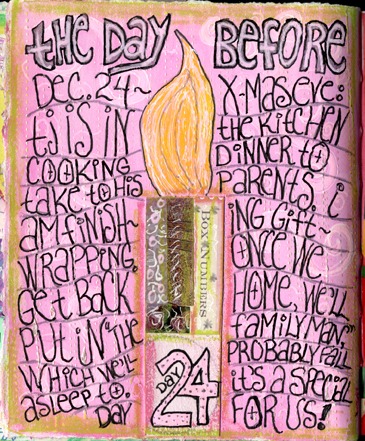 the Day Before
Dec. 24~ X-mas eve:
tj is in the kitchen
cooking dinner to
take to his parents. i
am finish- ing gift~
wrapping. once we
get back home, we'll
put in "the family man,"
which we'll probably fall
asleep to. it's a special
day for us!
Box Numbers
Day
24